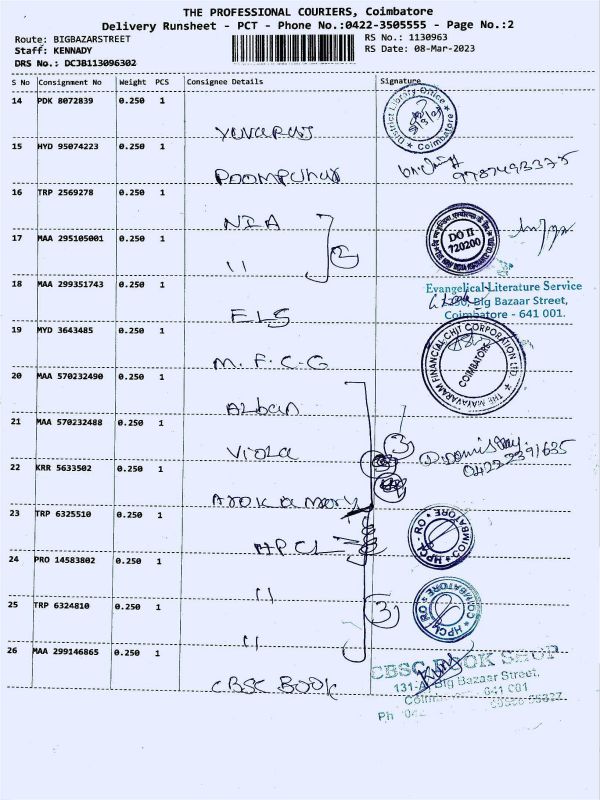 THE PROFESSIONAL COURIERS, Coimbatore
Delivery Runsheet - PCT - Phone No.:0422-3505555 - Page No.:2
Route: BIGBAZARSTREET
RS No.: 1130963
Staff: KENNADY
RS Date: 08-Mar-2023
DRS No.: DCJB113096302
S No Consignment No Weight PCS Consignee Details Signature
14 PDK 8072839 0.250 1
District Library Office
Coimbatore
Yuvaraj
15 HYD 95074223 0.250 1
9787493375
Poompuhar
16 TRP 2569278 0.250 1
NIA
17 MAA 295105001 0.250 1
DO II
720200
11
2
18 MAA 299351743 0.250 1
Evangelical Literature Service
Big Bazaar Street,
Coimbatore - 641 001.
ELS
19 MYD 3643485 0.250 1
THE MAYAVARAM FINANCIAL CHIT CORPORATION LTD
COIMBATORE
M.F.C.G
20 MAA 570232490 0.250 1
Alban
21 MAA 570232488 0.250 1
3
Viola
22 KRR 5633502 0.250 1
0422 2391635
Arokamary
23 TRP 6325510 0.250 1
HPCL - RO
COIMBATORE
HPCL
24 PRO 14583802 0.250 1
11
25 TRP 6324810 0.250 1
HPCL RO
COIMBATORE
3
11
26 MAA 299146865 0.250 1
CBSC BOOK SHOP
131-A, Big Bazaar Street,
641 001
Ph
CBSC BOOK